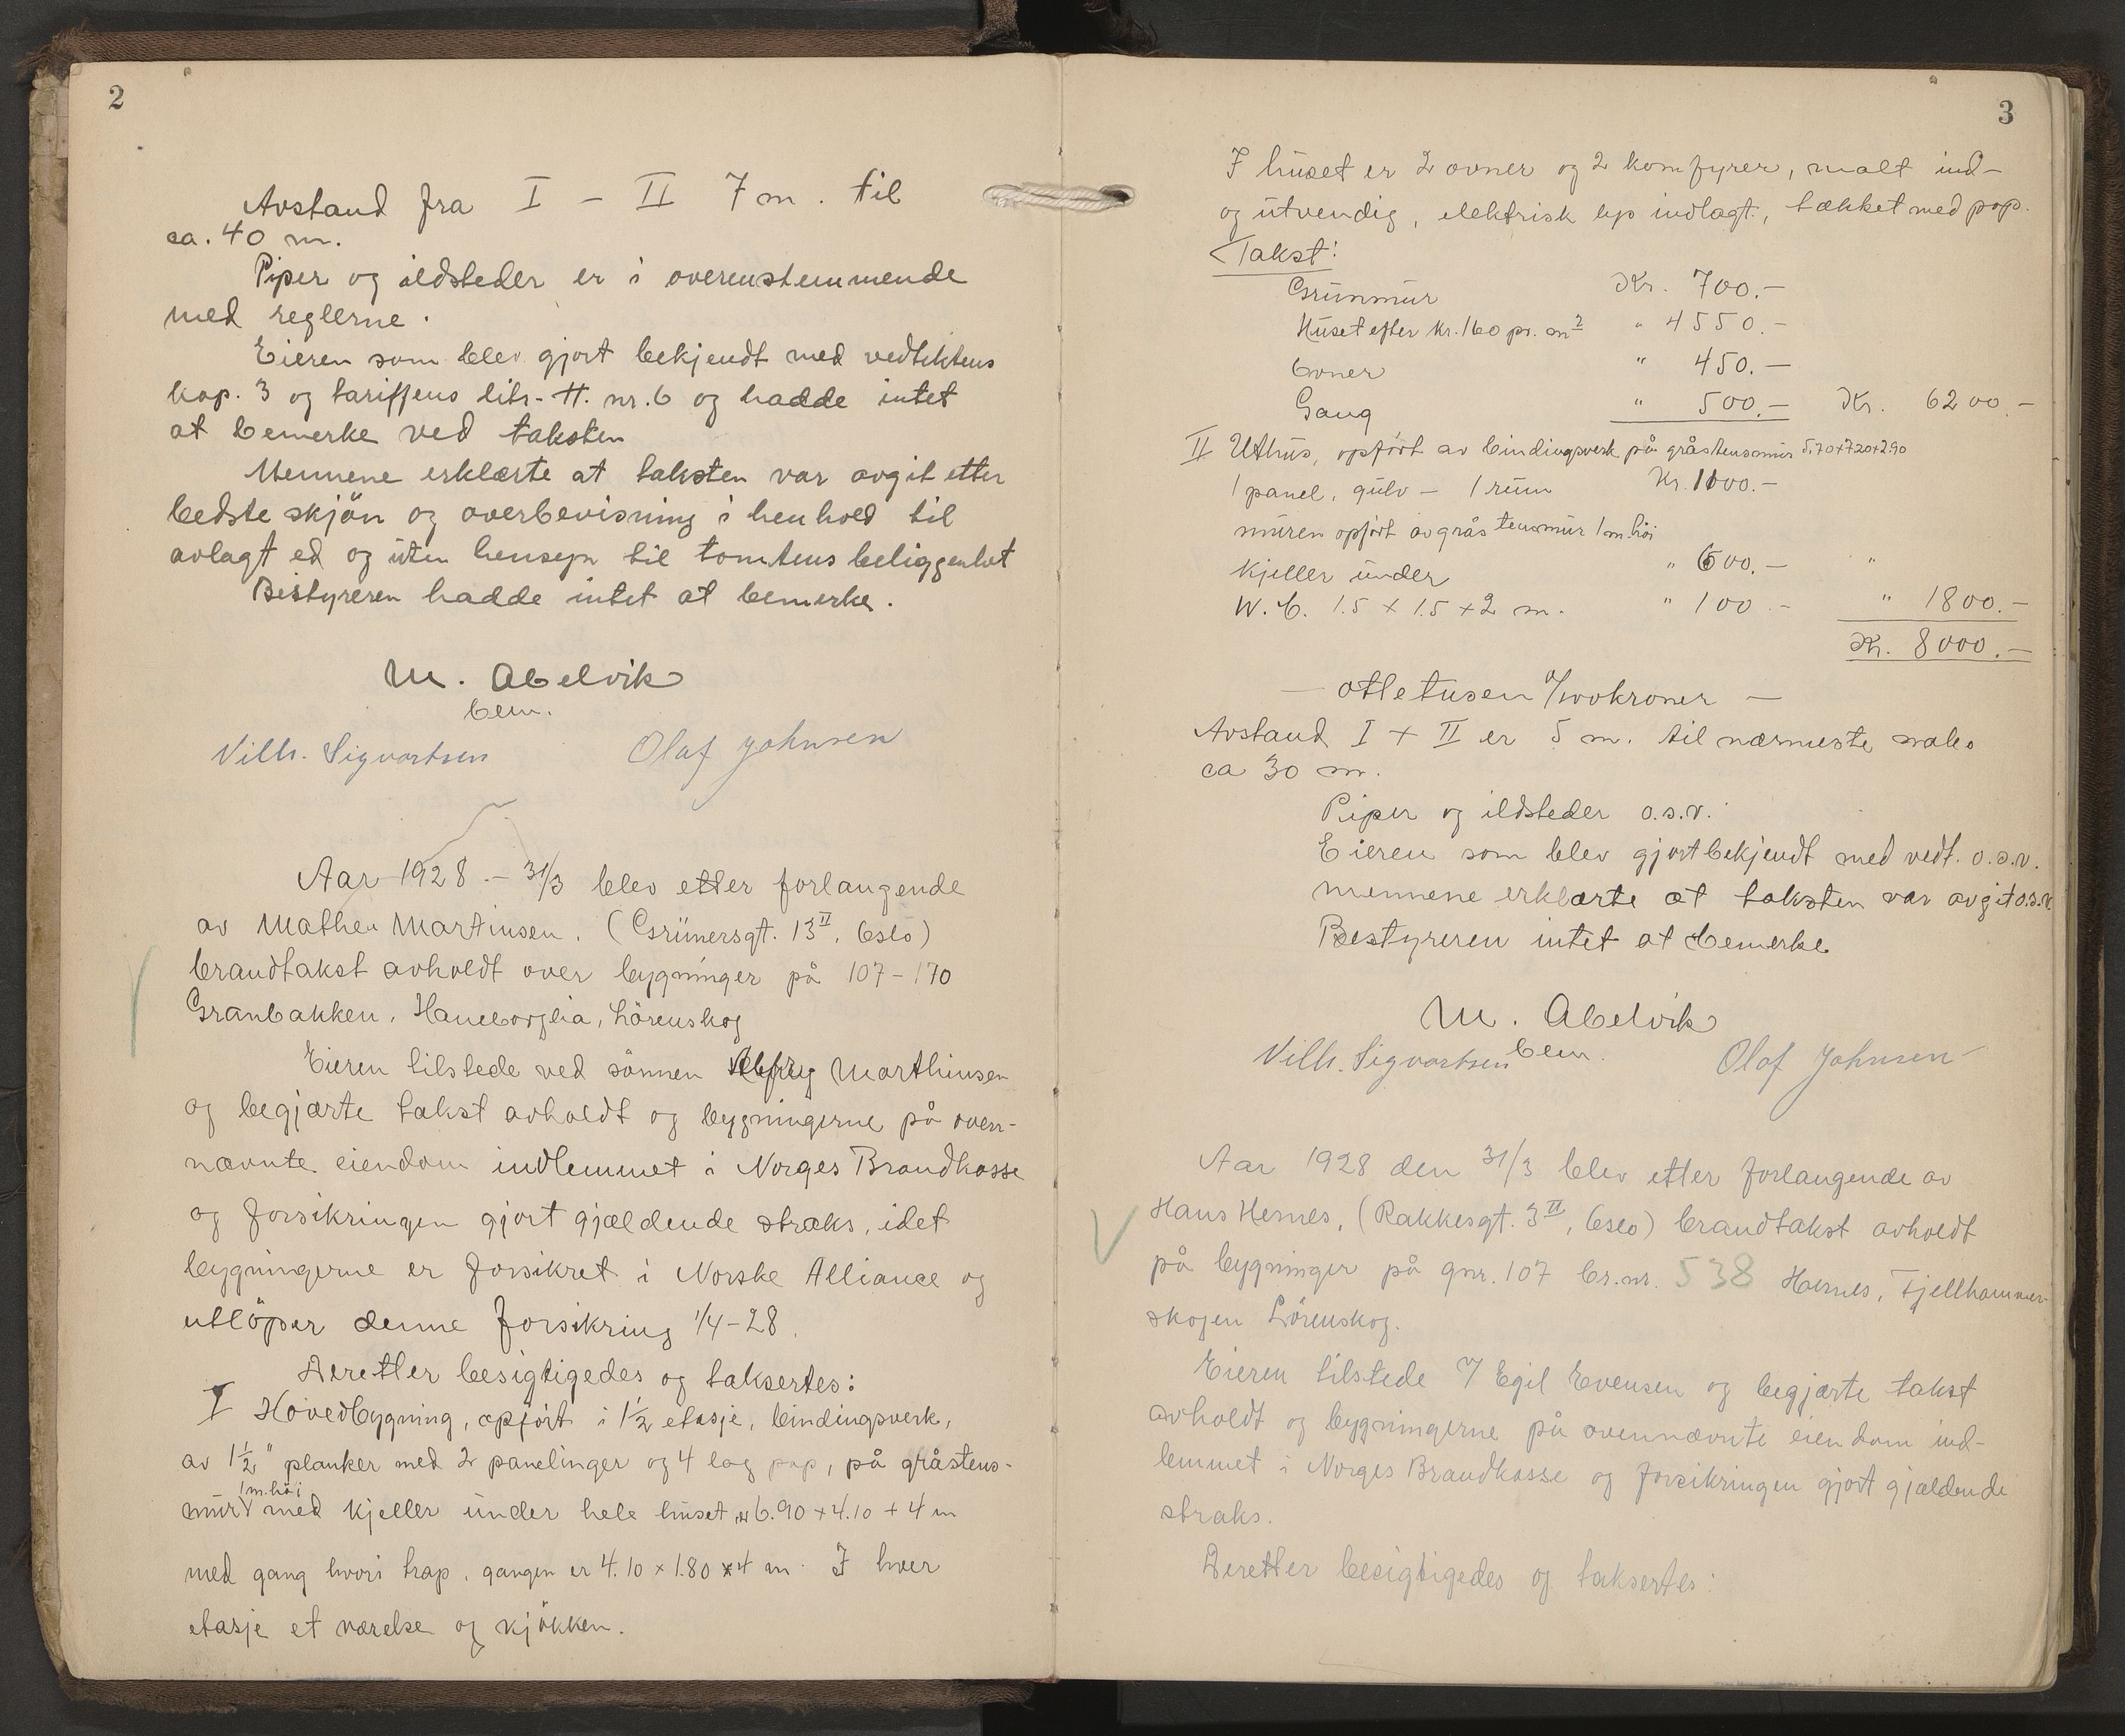 2
Avstand fra I – II 7 m. til
ca. 40 m.
Piper og ildsteder er i overenstemmende
med reglerne.
Eieren som blev gjort bekjendt med vedtektens
kap. 3 og tariffens litr. H. nr. 6 og hadde intet
at bemerke ved taksten
Mennene erklærte at taksten var avgit etter
bedste skjön og overbevisning i henhold til
avlagt ed og uten hensyn til tomtens beliggenhet
Bestyreren hadde intet at bemerke.
M. Abelvik
bem.
Vilh. Sigvartsen Olaf Johnsen
Aar 1928 – 31/3 blev etter forlangende
av Mathea Martinsen. (Grünersgt. 13 II, Oslo)
brandtakst avholdt over bygninger på 107 – 170
Granbakken, Haneborglia, Lörenskog
Eieren tilstede ved sönnen Marthinsen
og begjærte takst avholdt og bygningerne på oven-
nævnte eiendom indlemmet i Norges Brandkasse
og forsikringen gjort gjældende straks, idet
bygningerne er forsikret i Norske Alliance og
utlöper denne forsikring 1/4 – 28.
Deretter besigtigedes og taksertes:
I Hovedbygning, opfört i 1½ etasje, bindingsverk,
av 1½" planker med 2 panelinger og 4 lag pap, på gråstens-
1 m. höi
mur med kjeller under hele huset er 6.90 + 4.10 + 4 m
med gang hvori trap, gangen er 4.10 × 1.80 × 4 m. I hver
etasje et værelse og kjökken.
3
I huset er 2 ovner og 2 komfyrer, malt ind-
og utvendig, elektrisk lys indlagt, tækket med pap.
Takst:
Grunmur Kr. 700.–
Huset efter kr. 160 pr. m² " 4550.–
Ovner " 450.–
Gang " 500.– Kr. 6200.–
II Uthus, opfört av bindingsverk på gråstensmur 5.70+7.20+2.90
1 panel, gulv – 1 rum Kr. 1100.–
muren opfört av gråstensmur 1 m. höi
kjeller under " 600.– "
W.C. 1.5 × 1.5 + 2 m. " 100.– " 1800.–
Kr. 8000.–
– otte tusen 0/00 kroner –
Avstand I + II er 5 m. til nærmeste nabo
ca 30 m.
Piper og ildsteder o.s.v.
Eieren som blev gjort bekjendt med vedt. o.s.v.
mennene erklærte at taksten var avgit o.s.v.
Bestyreren intet at bemerke
M. Abelvik
bem.
Vilh. Sigvartsen Olaf Johnsen
Aar 1928 den 31/3 blev etter forlangende av
Hans Hernes, (Rakkesgt. 3 II, Oslo) brandtakst avholdt
på bygninger på gnr. 107 br.nr. 538 Hernes, Fjellhammer-
skogen Lörenskog.
Eieren tilstede v/ Egil Evensen og begjærte takst
avholdt og bygningerne på ovennævnte eiendom ind-
lemmet i Norges Brandkasse og forsikringen gjort gjældende
straks.
Deretter besigtigedes og taksertes: